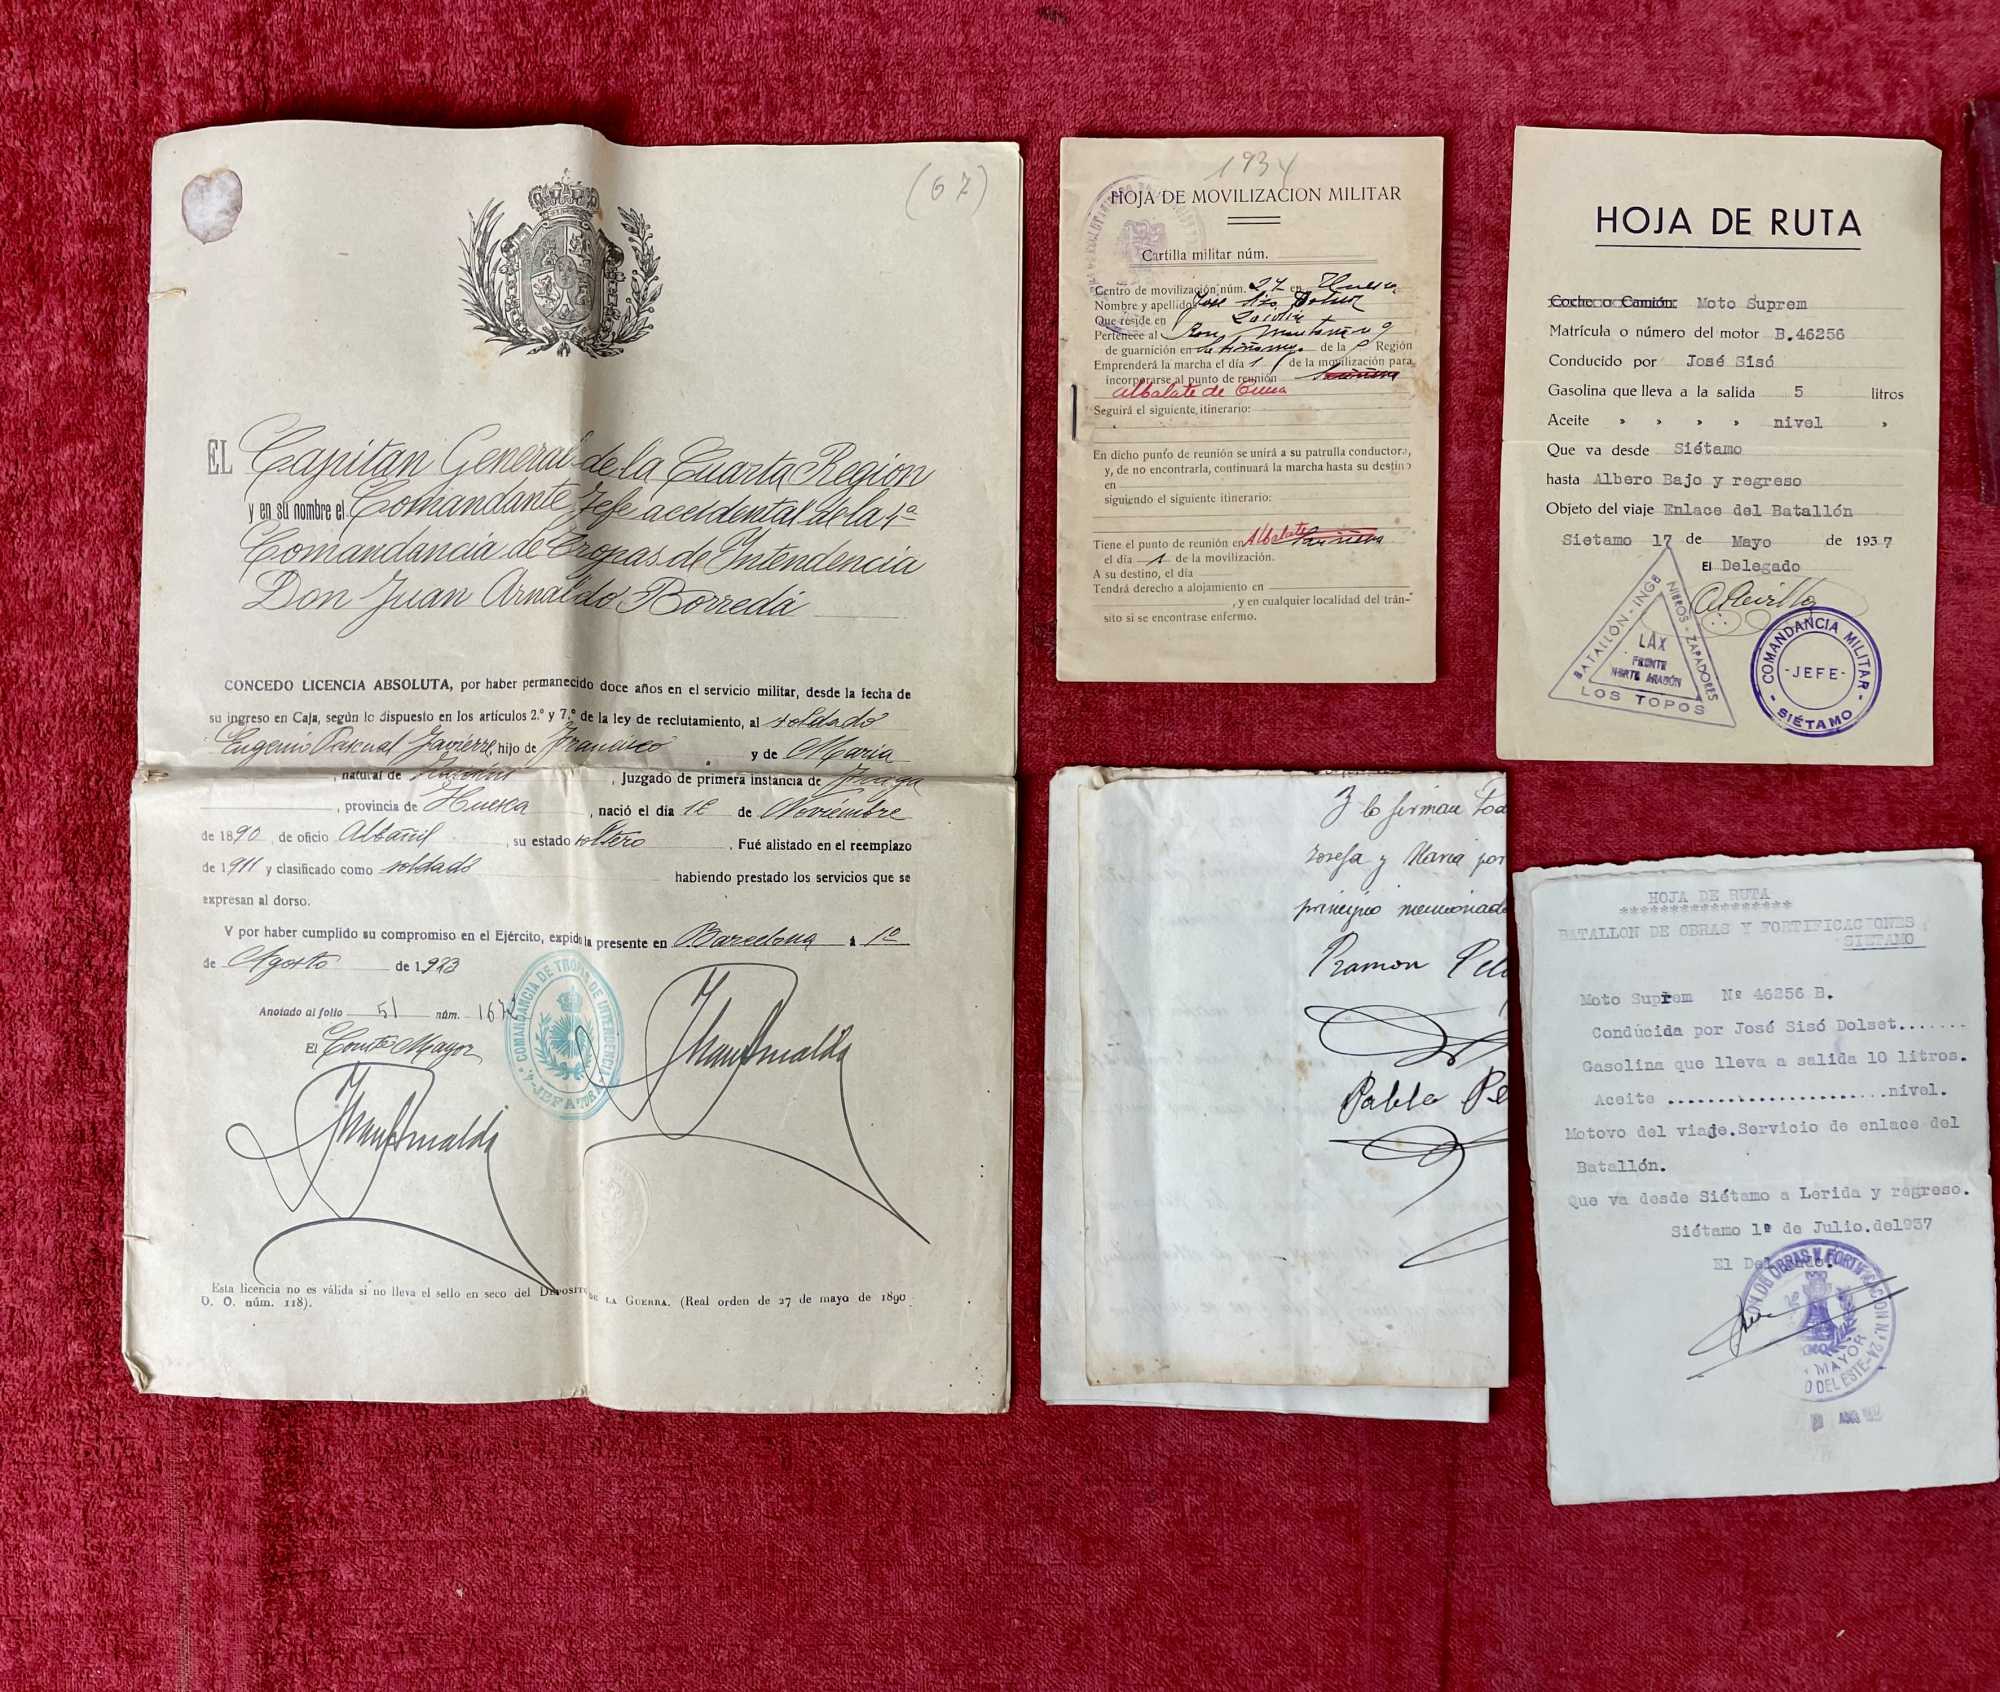 (67)
EL Capitan General de la Cuarta Region
y en su nombre el Comandante Jefe accidental de la 4ª
Comandancia de Tropas de Intendencia
Don Juan Arnaldo Borredá
CONCEDO LICENCIA ABSOLUTA, por haber permanecido doce años en el servicio militar, desde la fecha de
su ingreso en Caja, según lo dispuesto en los artículos 2.º y 7.º de la ley de reclutamiento, al soldado
Eugenio Pascual Javierre, hijo de Francisco y de Maria
, natural de , Juzgado de primera instancia de Fraga
, provincia de Huesca , nació el día 12 de Noviembre
de 1890, de oficio Albañil , su estado soltero . Fué alistado en el reemplazo
de 1911 y clasificado como soldado habiendo prestado los servicios que se
expresan al dorso.
Y por haber cumplido su compromiso en el Ejército, expido la presente en Barcelona á 1º
de Agosto de 1.923
Anotado al folio 51 núm. 1672
El Comte Mayor
COMANDANCIA DE TROPAS DE INTENDENCIA
Juan Arnaldo
Juan Arnaldo
Esta licencia no es válida si no lleva el sello en seco del DEPOSITO DE LA GUERRA. (Real orden de 27 de mayo de 1890
D. O. núm. 118).
1934
HOJA DE MOVILIZACION MILITAR
Cartilla militar núm.
Centro de movilización núm. 27 en Huesca
Nombre y apellidos José Siso Dolset
Que reside en
Pertenece al
de guarnición en de la Región
Emprenderá la marcha el día 1 de la movilización para
incorporarse al punto de reunión Sariñena
Albalate de Cinca
Seguirá el siguiente itinerario:
En dicho punto de reunión se unirá a su patrulla conductora,
y, de no encontrarla, continuará la marcha hasta su destino
en
siguiendo el siguiente itinerario:
Tiene el punto de reunión en Albalate Sariñena
el día 1 de la movilización.
A su destino, el día
Tendrá derecho a alojamiento en
, y en cualquier localidad del trán-
sito si se encontrase enfermo.
HOJA DE RUTA
Coche o Camión: Moto Suprem
Matrícula o número del motor B.46256
Conducido por José Sisó
Gasolina que lleva a la salida 5 litros
Aceite » » » » nivel »
Que va desde Siétamo
hasta Albero Bajo y regreso
Objeto del viaje Enlace del Batallón
Sietamo 17 de Mayo de 1937
El Delegado
BATALLÓN-INGE
NIEROS-ZAPADORES
LOS TOPOS
LAX
FRENTE
NORTE ARAGÓN
COMANDANCIA MILITAR
-JEFE-
SIÉTAMO
Y lo firman tod
Josefa y Maria por
principio mencionado
Ramon
Pablo Pe
HOJA DE RUTA
*****************
BATALLON DE OBRAS Y FORTIFICACIONES
SIETAMO
Moto Suprem Nº 46256 B.
Condúcida por José Sisó Dolset.......
Gasolina que lleva a salida 10 litros.
Aceite ......................nivel.
Motovo del viaje.Servicio de enlace del
Batallón.
Que va desde Siétamo a Lerida y regreso.
Siétamo 1º de Julio.del937
El Delegado.
ON DE OBRAS Y FORTIFICACION N.º 24
MAYOR
O DEL ESTE